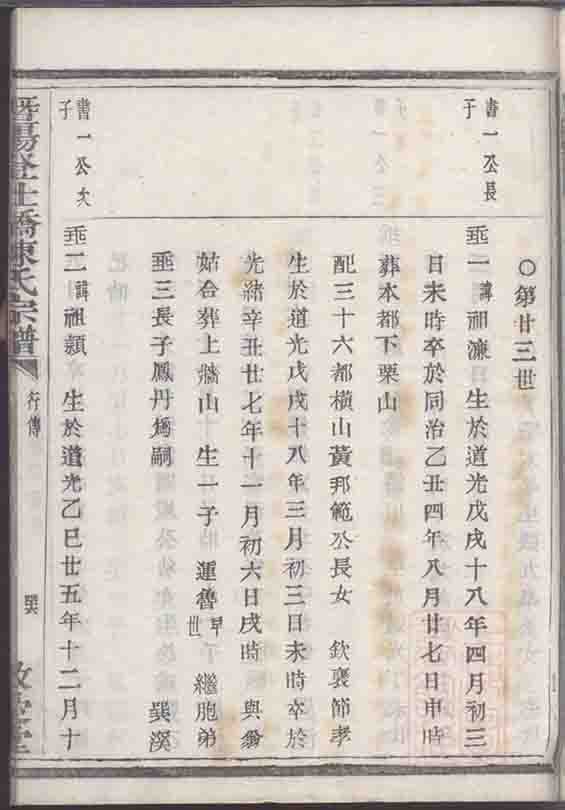 ○第廿三世
書一公長
子
垂一諱祖濂 生於道光戊戌十八年四月初三
日未時卒於同治乙丑四年八月廿七日申時
葬本都下栗山
配三十六都橫山黃邦範公長女 欽褒節孝
生於道光戊戌十八年三月初三日未時卒於
光緒辛丑廿七年十一月初六日戌時 與翁
姑合葬上牆山 生一子 運魯早世 繼胞弟
垂三長子鳳丹爲嗣 巽溪
書一公次
子
垂二諱祖穎 生於道光乙巳廿五年十二月十
暨陽 店橋陳氏宗譜
行傳
巽
敦 堂